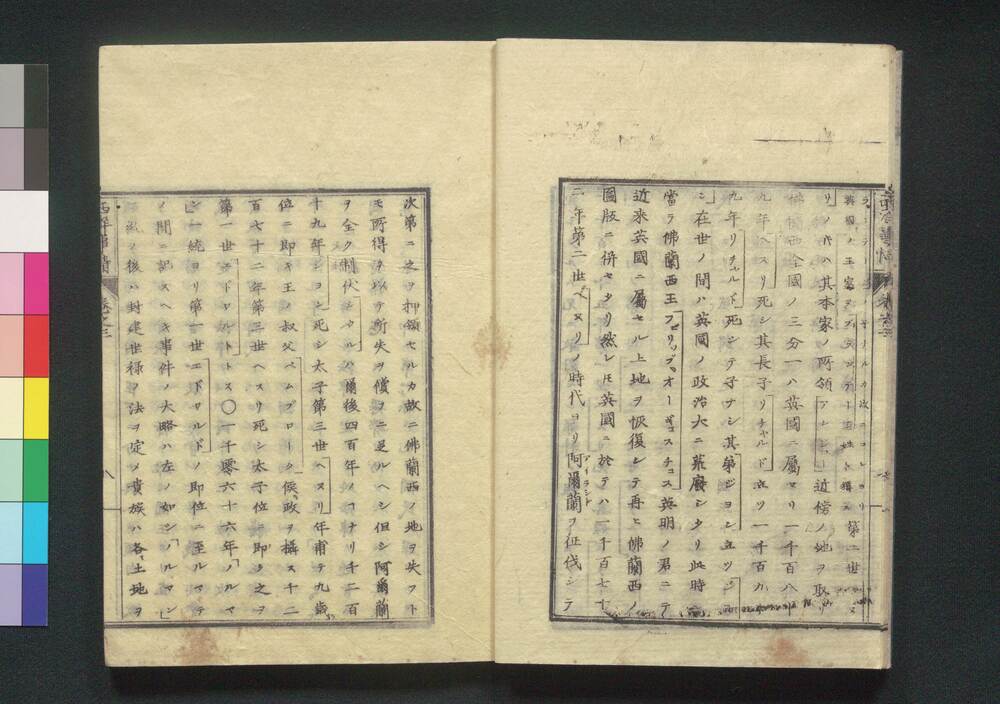 英國ノ王室ヲプランタジ子ート王姓ト稱ス 第二世ヘヌ
リノハハ其本家ノ所領「アンジ」近傍ノ地ヲ取リ
佛蘭西全國ノ三分一ハ英國ニ屬セリ一千百八十
九年ヘヌリ死シ其長子リチャルド立ツ一千百九十
九年リチャルド死シテ子ナシ其弟ジヨン立ツジヨ
ン在世ノ間ハ英國ノ政治大ニ衰廢シタリ此時ニ
當ラ佛蘭西王フ〻リップ、オーギュスチュス英明ノ君ニテ
近來英國ニ屬セル土地ヲ恢復シテ再ヒ佛蘭西ノ
圖版ニ併セタリ然レ𪜈英國ニ於テハ一千百七十
二年第二世ヘヌリノ時代ヨリ阿爾蘭ヲ征伐シテ
アイランド
次第ニ之ヲ押領セルカ故ニ佛蘭西ノ地ヲ失フト
𪜈所得ヲ以テ所失ヲ償フニ足ルヘシ但シ阿爾蘭
ヲ全ク制伏シタルハ爾後四百年ノヿナリ千二百
十九年ジヨン死シ太子第三世ヘヌリ年甫テ九歳
位ニ即キ王ノ叔父ペムブローク侯、政ヲ攝ス千二
百七十二年第三世ヘヌリ死シ太子位ニ即ク之ヲ
第一世エドワルドトス〇一千零六十六年「ノルマ
ン」一統ヨリ第一世エドワルドノ即位ニ至ルマテ
ノ間ニ記スヘキ事件ノ大略ハ左ノ如シ「ノルマン」
一統ノ後ハ封建世祿ノ法ヲ定メ貴族ハ各〻土地ヲ
西洋事情 卷之三
八